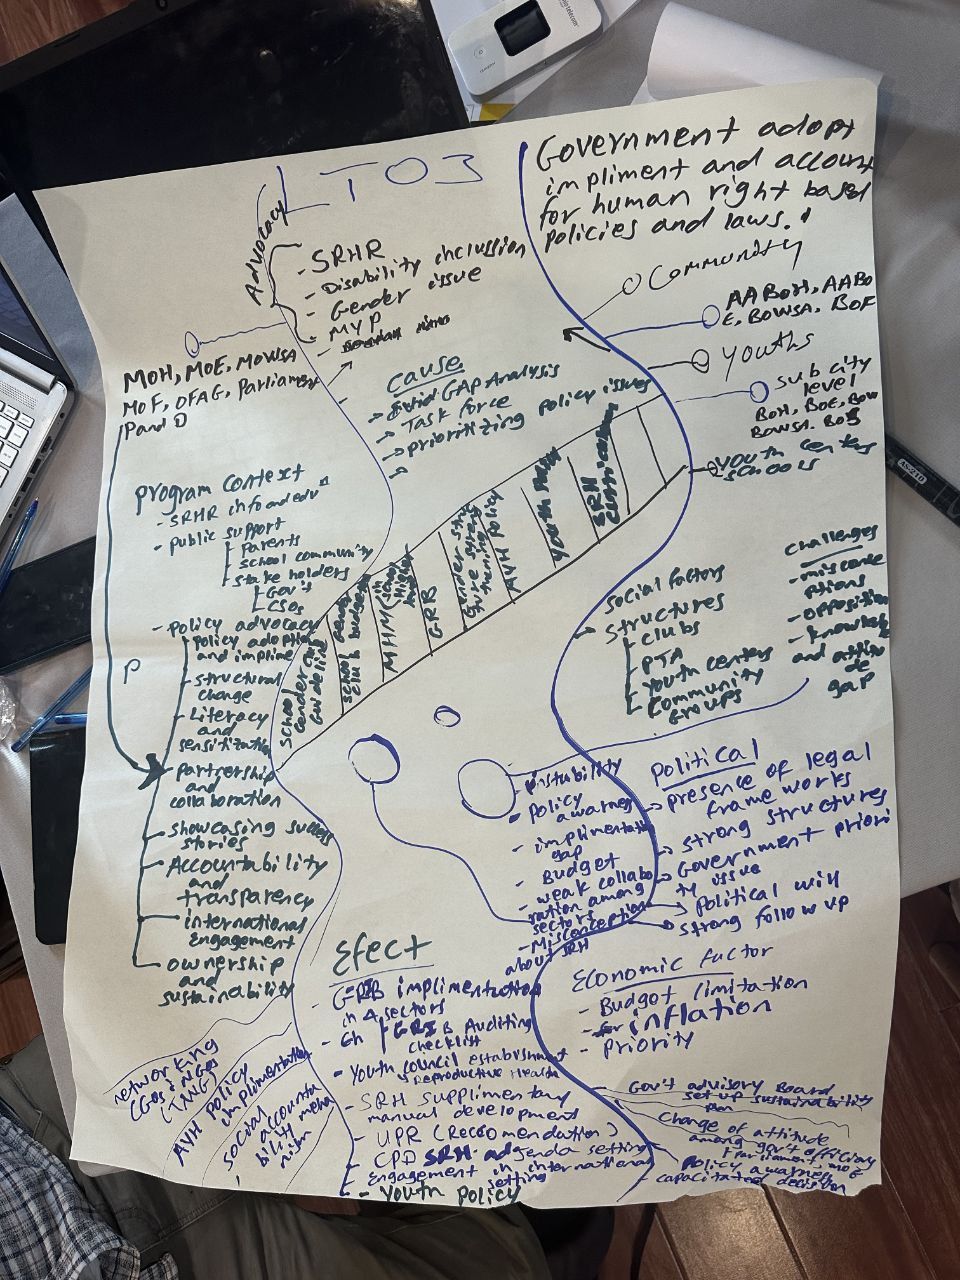 LTO3
Government adopt
impliment and account
for human right based
policies and laws.!
Advocacy
- SRHR
- Disability inclussion
- Gender issue
- MYP
MOH, MOE, MOWSA
MOF, OFAG, Parliament
P and D
Community
AABOH, AABO
E, BOWSA, BOF
Youths
Sub city
level
BOH, BOE, BOW
BOWSA, BOS
Youth centers
schools
Cause
GAP Analysis
Task force
prioritizing policy issues
program context
- SRHR info and edu
- Public support
Parents
School community
Stake holders
Gov's
CSOs
- Policy advocacy
Policy adoption
and implime
- Structural
change
- Literacy
and
sensitization
partnership
and
collaboration
showcasing success
stories
Accountability
and
transparency
international
Engagement
ownership
and
sustainability
P
school
Gender
Guideline
school Gender
club budget
MIHM
GRB
Gender
training
AYH Policy
Youth
SRH
Social factors
Structures
- clubs
- PTA
- Youth centers
- Community
Groups
challenges
- Opposition
- knowledge
and attitu
de
gap
- instubility
- Policy
awarness
- implimentation
gap
- Budget
- weak collabo
ration among
sectors
- Misconception
about SRH
Political
presence of legal
frame works
strong structures
Government priori
ty issue
Political will
strong follow up
Economic factor
- Budget limitation
- inflation
- Priority
Efect
- GRB implimentation
in 4 sectors
- GRB Auditing
checklist
- Youth council estabishment
Reproductive Health
- SRH supplimentary
manual development
- UPR (Reccomendation)
- CPD SRH adgenda setting
- Engagement in international
setting
- Youth policy
networking
CSOs & NGOs
AYH policy
implimentation
social
accounta
bility mecha
nism
Gov't advisory Board
set up sustainability
Plan
change of attitude
among gov't officials
Parliament, MOE
Policy awarness
capacitated decision